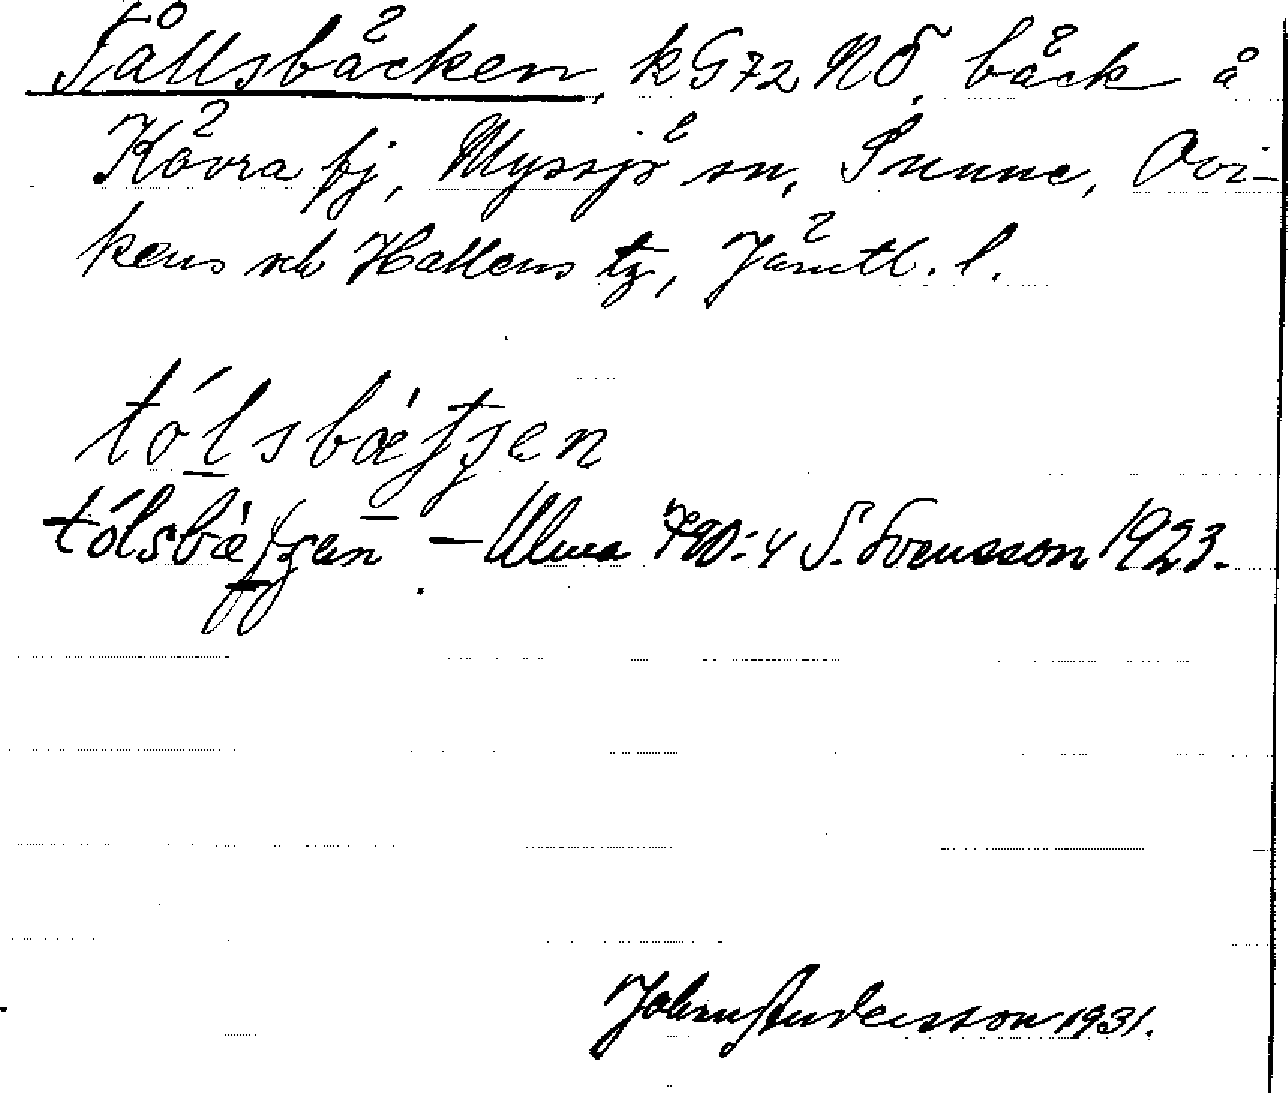 Tållsbäcken, k G 72 NÖ, bäck å
Kövra fj, Myssjö sn, Sunne, Ovi-
kens och Hallens tg, Jämtl. l.
tólsbæ̀tʃen
tólsbæ̀tʃen – Ulma 790:4 S. Svensson 1923.
John Andersson 1931.